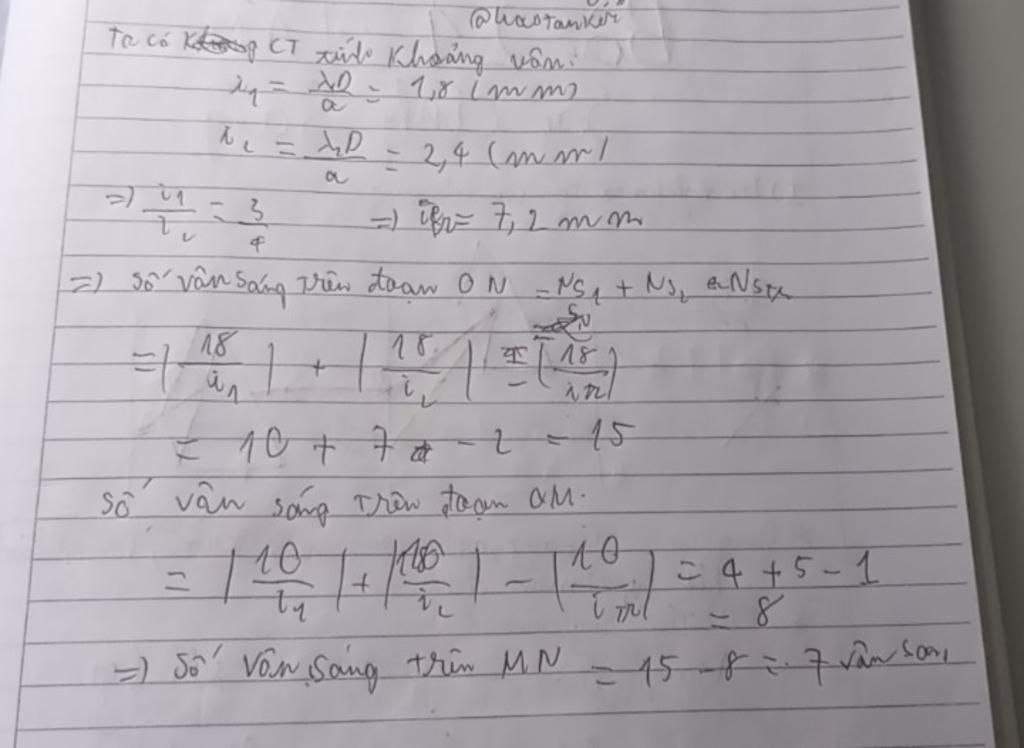 @haotankir
Ta có CT tính Khoảng vân:
i₁ = λD/a = 1,8 (mm)
i₂ = λ₂D/a = 2,4 (mm)
=> i₁/i₂ = 3/4 => itr = 7,2 mm
=> Số vân sáng trên đoạn ON = NS₁ + NS₂ - NStr
= |18/i₁| + |18/i₂| - |18/itr|
= 10 + 7 - 2 = 15
Số vân sáng trên đoạn OM.
= |10/i₁| + |10/i₂| - |10/itr| = 4 + 5 - 1
= 8
=> Số vân sáng trên MN = 15 - 8 = 7 vân sáng